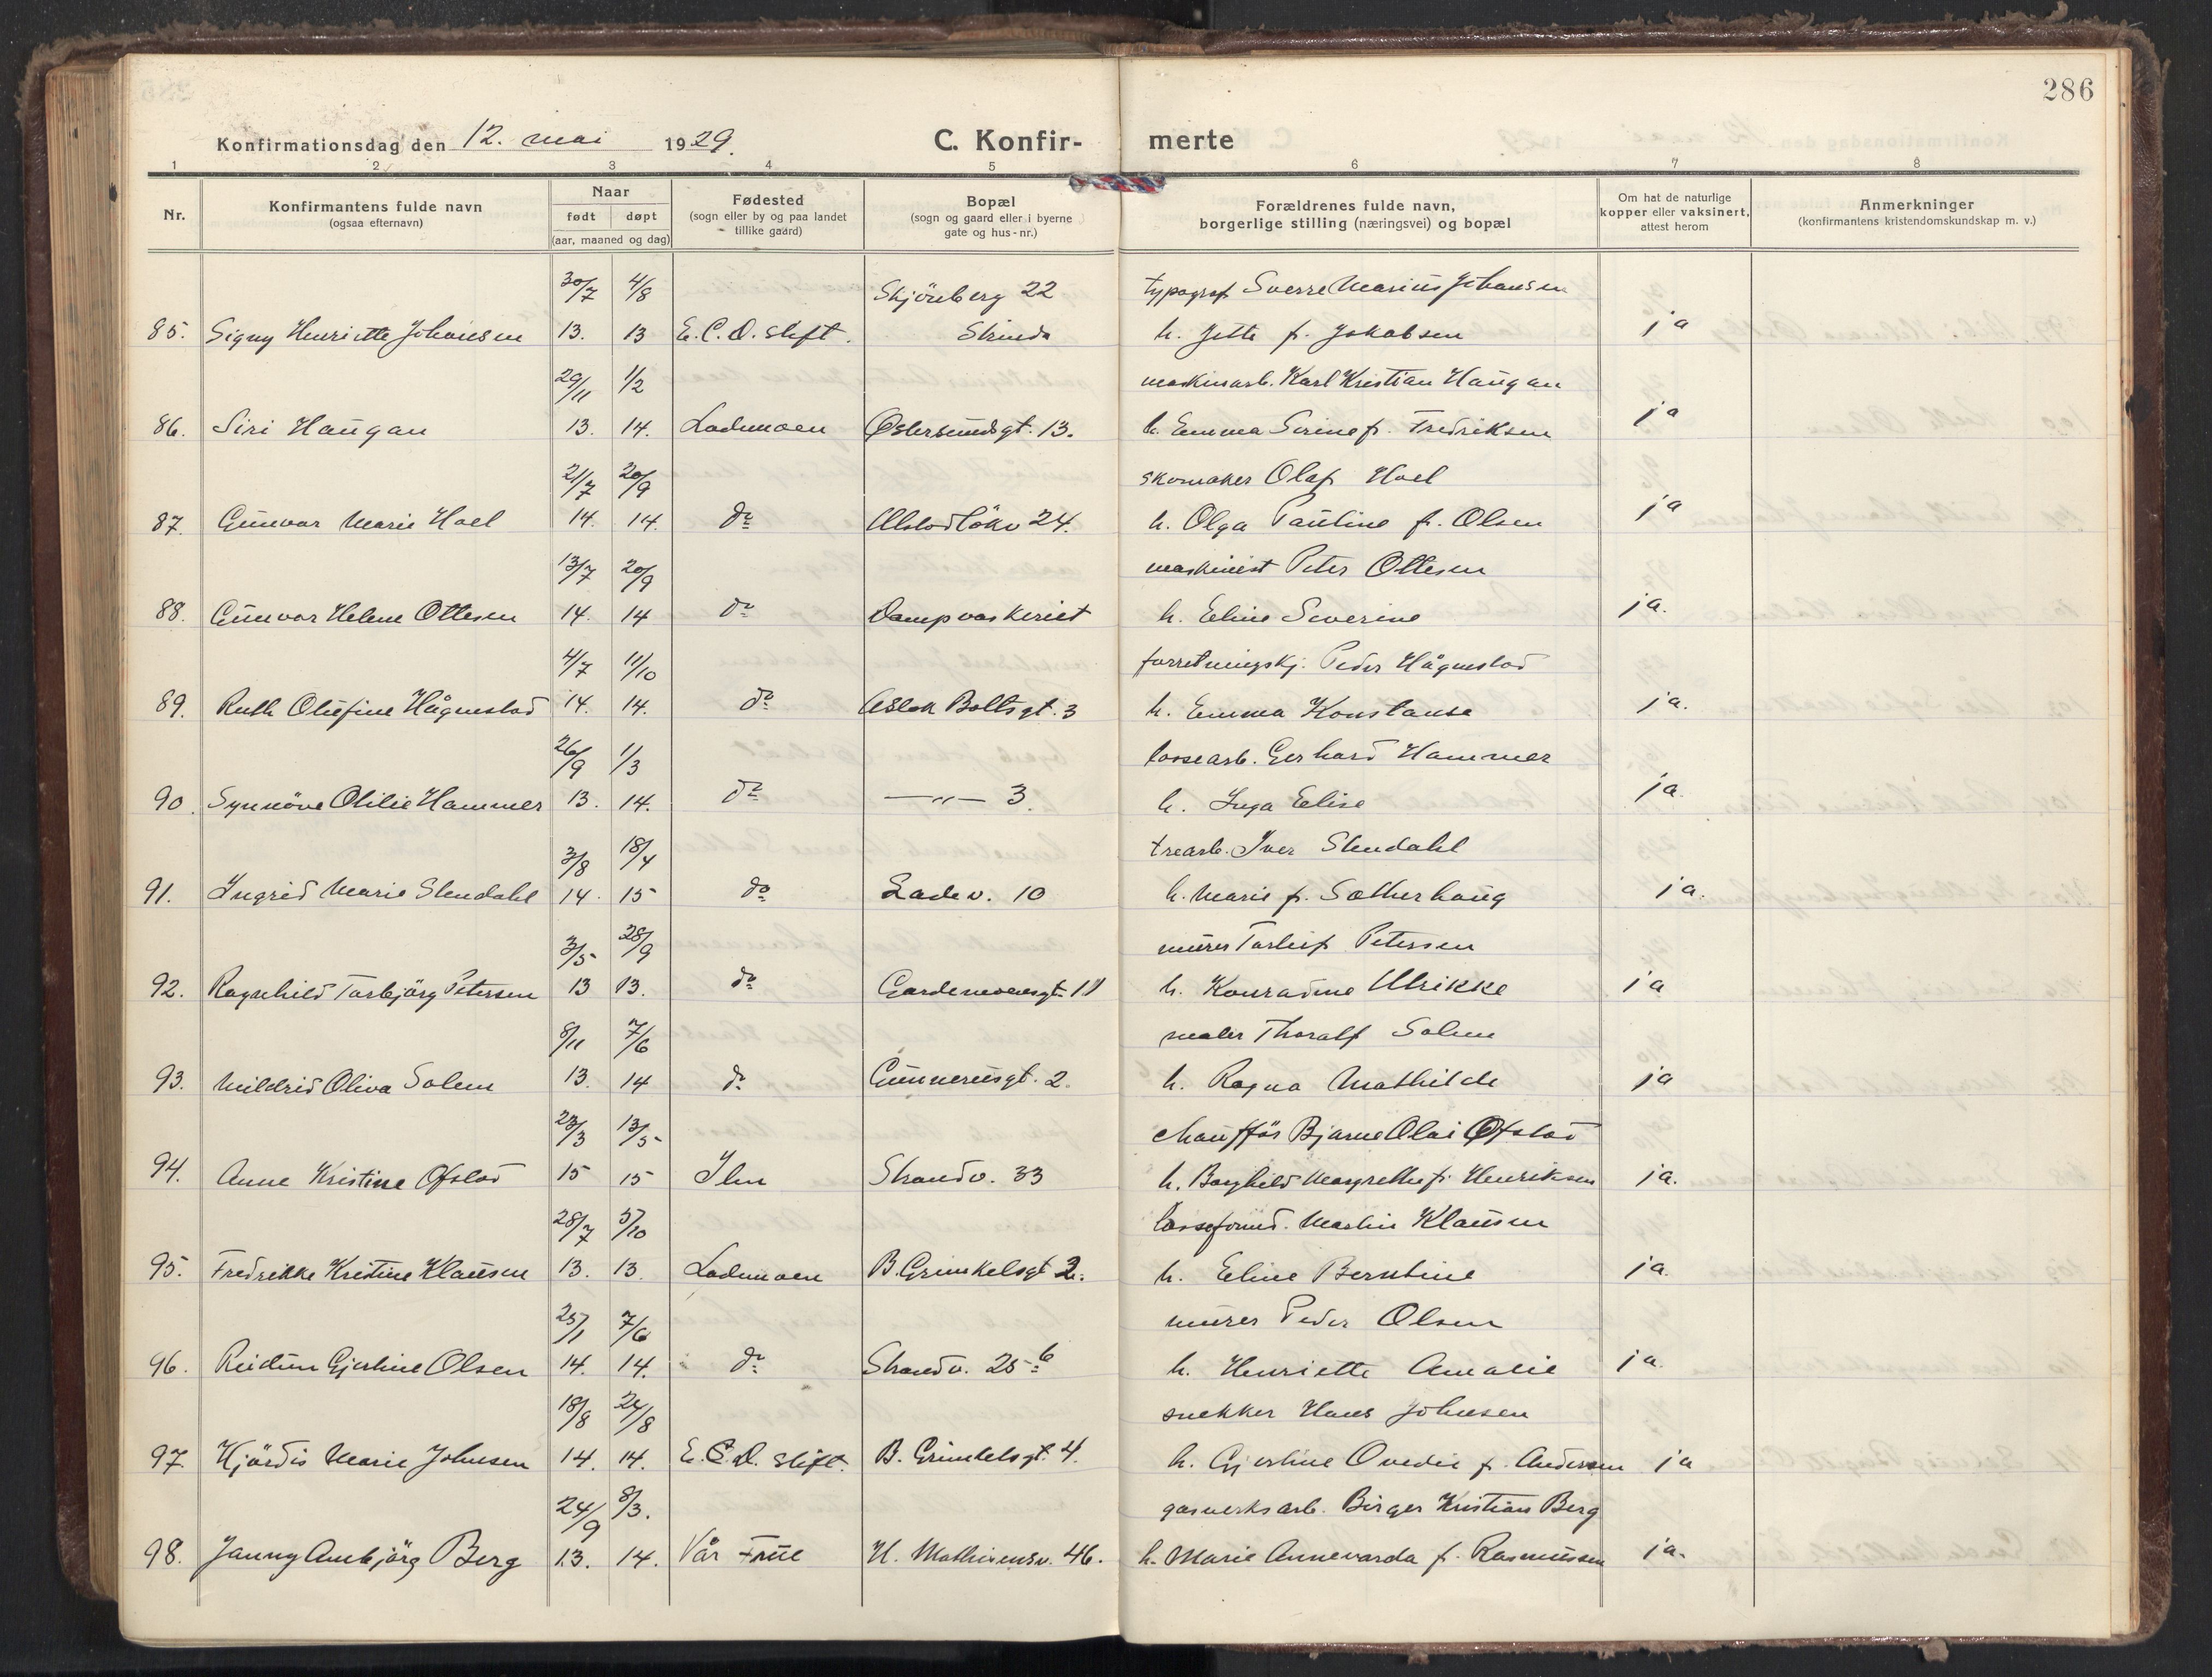 286
Konfirmationsdag den 12. mai 1929.
C. Konfirmerte
1 2 3 4 5 6 7 8
Nr.
Konfirmantens fulde navn
(ogsaa efternavn)
Naar
født døpt
(aar, maaned og dag)
Fødested
(sogn eller by og paa landet
tillike gaard)
Bopæl
(sogn og gaard eller i byerne
gate og hus-nr.)
Forældrenes fulde navn,
borgerlige stilling (næringsvei) og bopæl
Om hat de naturlige
kopper eller vaksinert,
attest herom
Anmerkninger
(konfirmantens kristendomskundskap m. v.)
30/7 4/8 Skjönberg 22 typograf Sverre Marius Johansen
85. Signy Henriette Johansen 13. 13 E. C. D. stift. Strinda h. Jette f. Jakobsen ja
29/11 1/2 maskinarb. Karl Kristian Haugan
86. Siri Haugan 13. 14. Lademoen Østersundsgt. 13. h. Emma Serine f. Fredriksen ja
21/7 20/9 skomaker Olaf Hoel
87. Gunvor Marie Hoel 14. 14. do 24. h. Olga Pauline f. Olsen ja
13/7 20/9 maskinist Peter Ottesen
88. Gunvor Helene Ottesen 14. 14 do Dampvaskeriet h. Eline Severine ja.
4/7 11/10 forretningskj. Peder Hågnestad
89. Ruth Olufine Hågnestad 14. 14. do Aslak Boltsgt. 3 h. Emma Konstanse ja.
26/9 1/3 lossearb. Gerhard Hammer
90. Synnöve Otilie Hammer 13. 14. do —〃— 3. h. Inga Elise ja.
3/8 18/4 trearb. Iver Stendahl
91. Ingrid Marie Stendahl 14. 15 do Ladev. 10 h. Marie f. Sætherhaug ja.
3/5 28/9 murer Torleif Petersen
92. Ragnhild Torbjörg Petersen 13 13. do Gardemoensgt. 11 h. Konradine Ulrikke ja
8/11 7/6 maler Thoralf Solem
93. Mildrid Oliva Solem 13. 14 do Gunnerusgt. 2. h. Ragna Mathilde ja
23/3 13/5 chauffør Bjarne Olai Øfstad
94. Anne Kristine Øfstad 15 15 Ilen Strandv. 33 h. Borghild Margrethe f. Henriksen ja.
28/7 5/10 losseformd. Martin Klausen
95. Fredrikke Kristine Klausen 13. 13. Lademoen B. Grimkelsgt 2. h. Eline Berntine ja.
25/1 7/6 murer Peder Olsen
96. Reidun Gjertine Olsen 14. 14. do Strandv. 25 b h. Henriette Amalie ja.
18/8 24/8 snekker Hans Johnsen
97. Hjördis Marie Johnsen 14. 14. E. C. D. stift. B. Grimkelsgt. 4. h. Gjertine Ovedie f. Andersen ja
24/9 8/3. gasverksarb. Birger Kristian Berg
98. Janny Annbjörg Berg 13. 14. Vår Frue H. Mathiesensv. 46. h. Marie Annevarda f. Rasmussen ja.